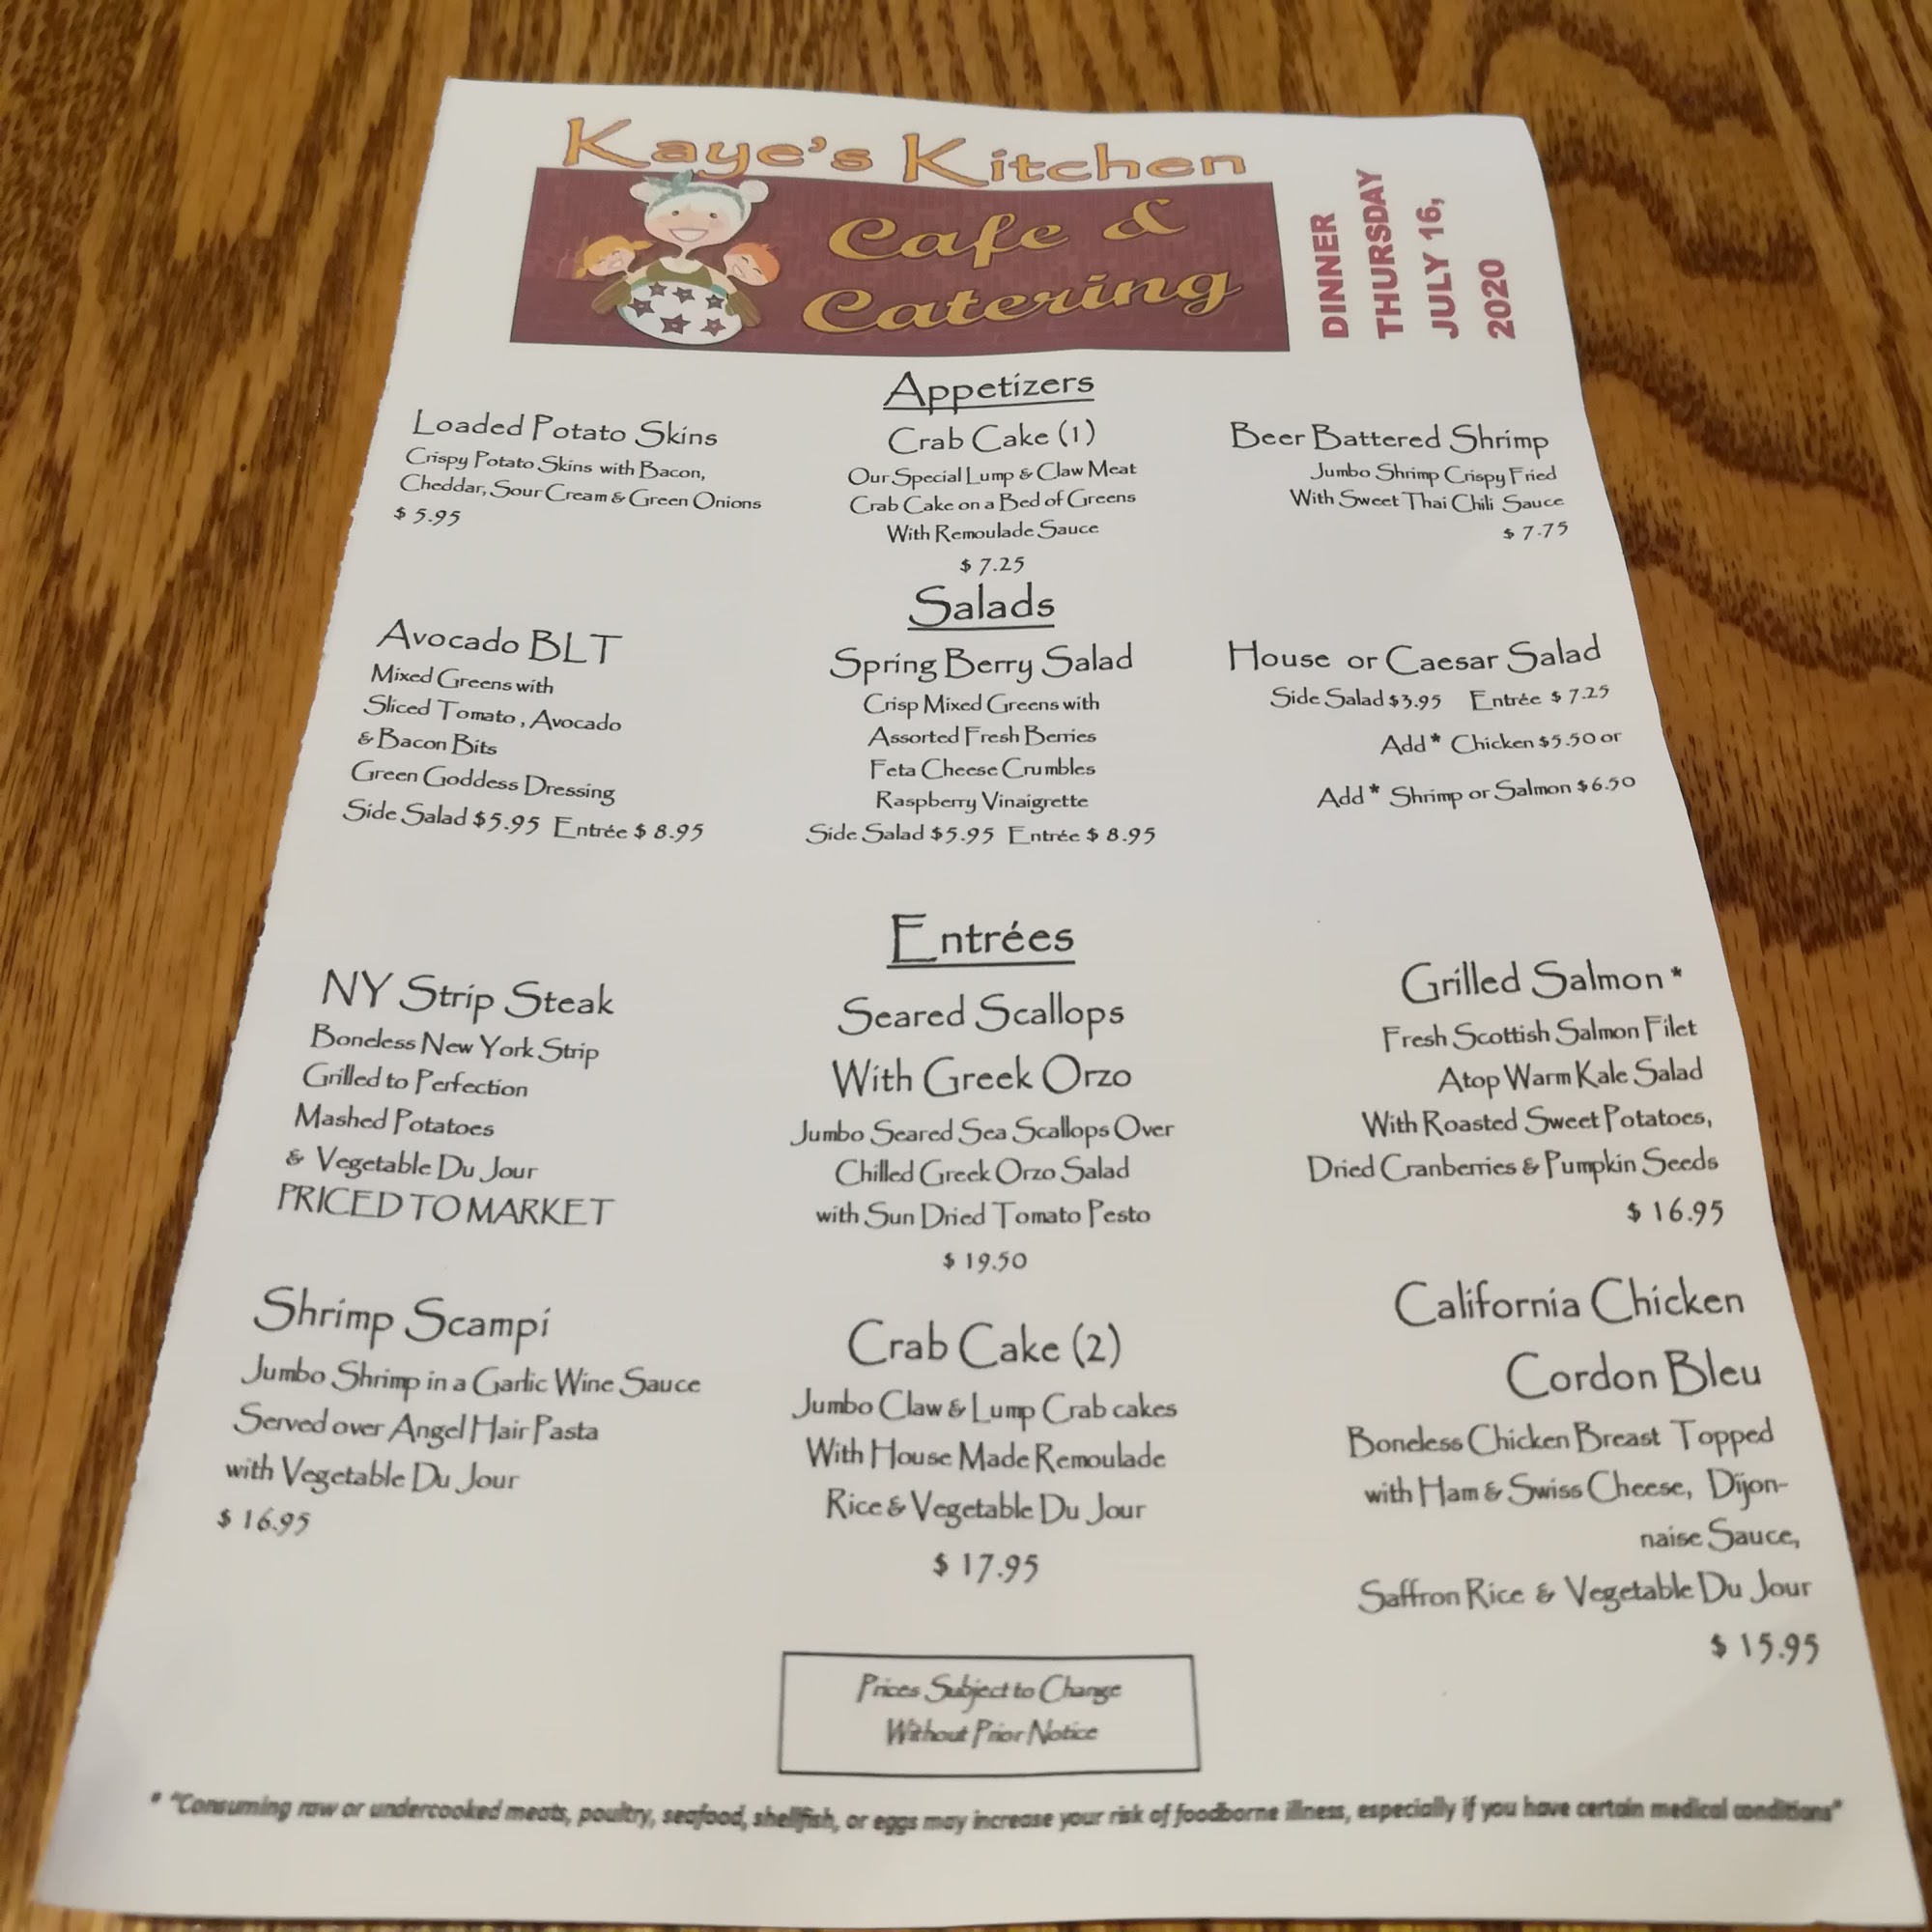 Kaye's Kitchen
Cafe &
Catering
DINNER
THURSDAY
JULY 16,
2020
Appetizers
Loaded Potato Skins
Crispy Potato Skins with Bacon,
Cheddar, Sour Cream & Green Onions
$ 5.95
Crab Cake (1)
Our Special Lump & Claw Meat
Crab Cake on a Bed of Greens
With Remoulade Sauce
$ 7.25
Beer Battered Shrimp
Jumbo Shrimp Crispy Fried
With Sweet Thai Chili Sauce
$ 7.75
Salads
Avocado BLT
Mixed Greens with
Sliced Tomato, Avocado
& Bacon Bits
Green Goddess Dressing
Side Salad $5.95 Entrée $ 8.95
Spring Berry Salad
Crisp Mixed Greens with
Assorted Fresh Berries
Feta Cheese Crumbles
Raspberry Vinaigrette
Side Salad $5.95 Entrée $ 8.95
House or Caesar Salad
Side Salad $3.95 Entrée $ 7.25
Add* Chicken $5.50 or
Add* Shrimp or Salmon $6.50
Entrées
NY Strip Steak
Boneless New York Strip
Grilled to Perfection
Mashed Potatoes
& Vegetable Du Jour
PRICED TO MARKET
Seared Scallops
With Greek Orzo
Jumbo Seared Sea Scallops Over
Chilled Greek Orzo Salad
with Sun Dried Tomato Pesto
$ 19.50
Grilled Salmon *
Fresh Scottish Salmon Filet
Atop Warm Kale Salad
With Roasted Sweet Potatoes,
Dried Cranberries & Pumpkin Seeds
$ 16.95
Shrimp Scampi
Jumbo Shrimp in a Garlic Wine Sauce
Served over Angel Hair Pasta
with Vegetable Du Jour
$ 16.95
Crab Cake (2)
Jumbo Claw & Lump Crab cakes
With House Made Remoulade
Rice & Vegetable Du Jour
$ 17.95
California Chicken
Cordon Bleu
Boneless Chicken Breast Topped
with Ham & Swiss Cheese, Dijon-
naise Sauce,
Saffron Rice & Vegetable Du Jour
$ 15.95
Prices Subject to Change
Without Prior Notice
* "Consuming raw or undercooked meats, poultry, seafood, shellfish, or eggs may increase your risk of foodborne illness, especially if you have certain medical conditions"